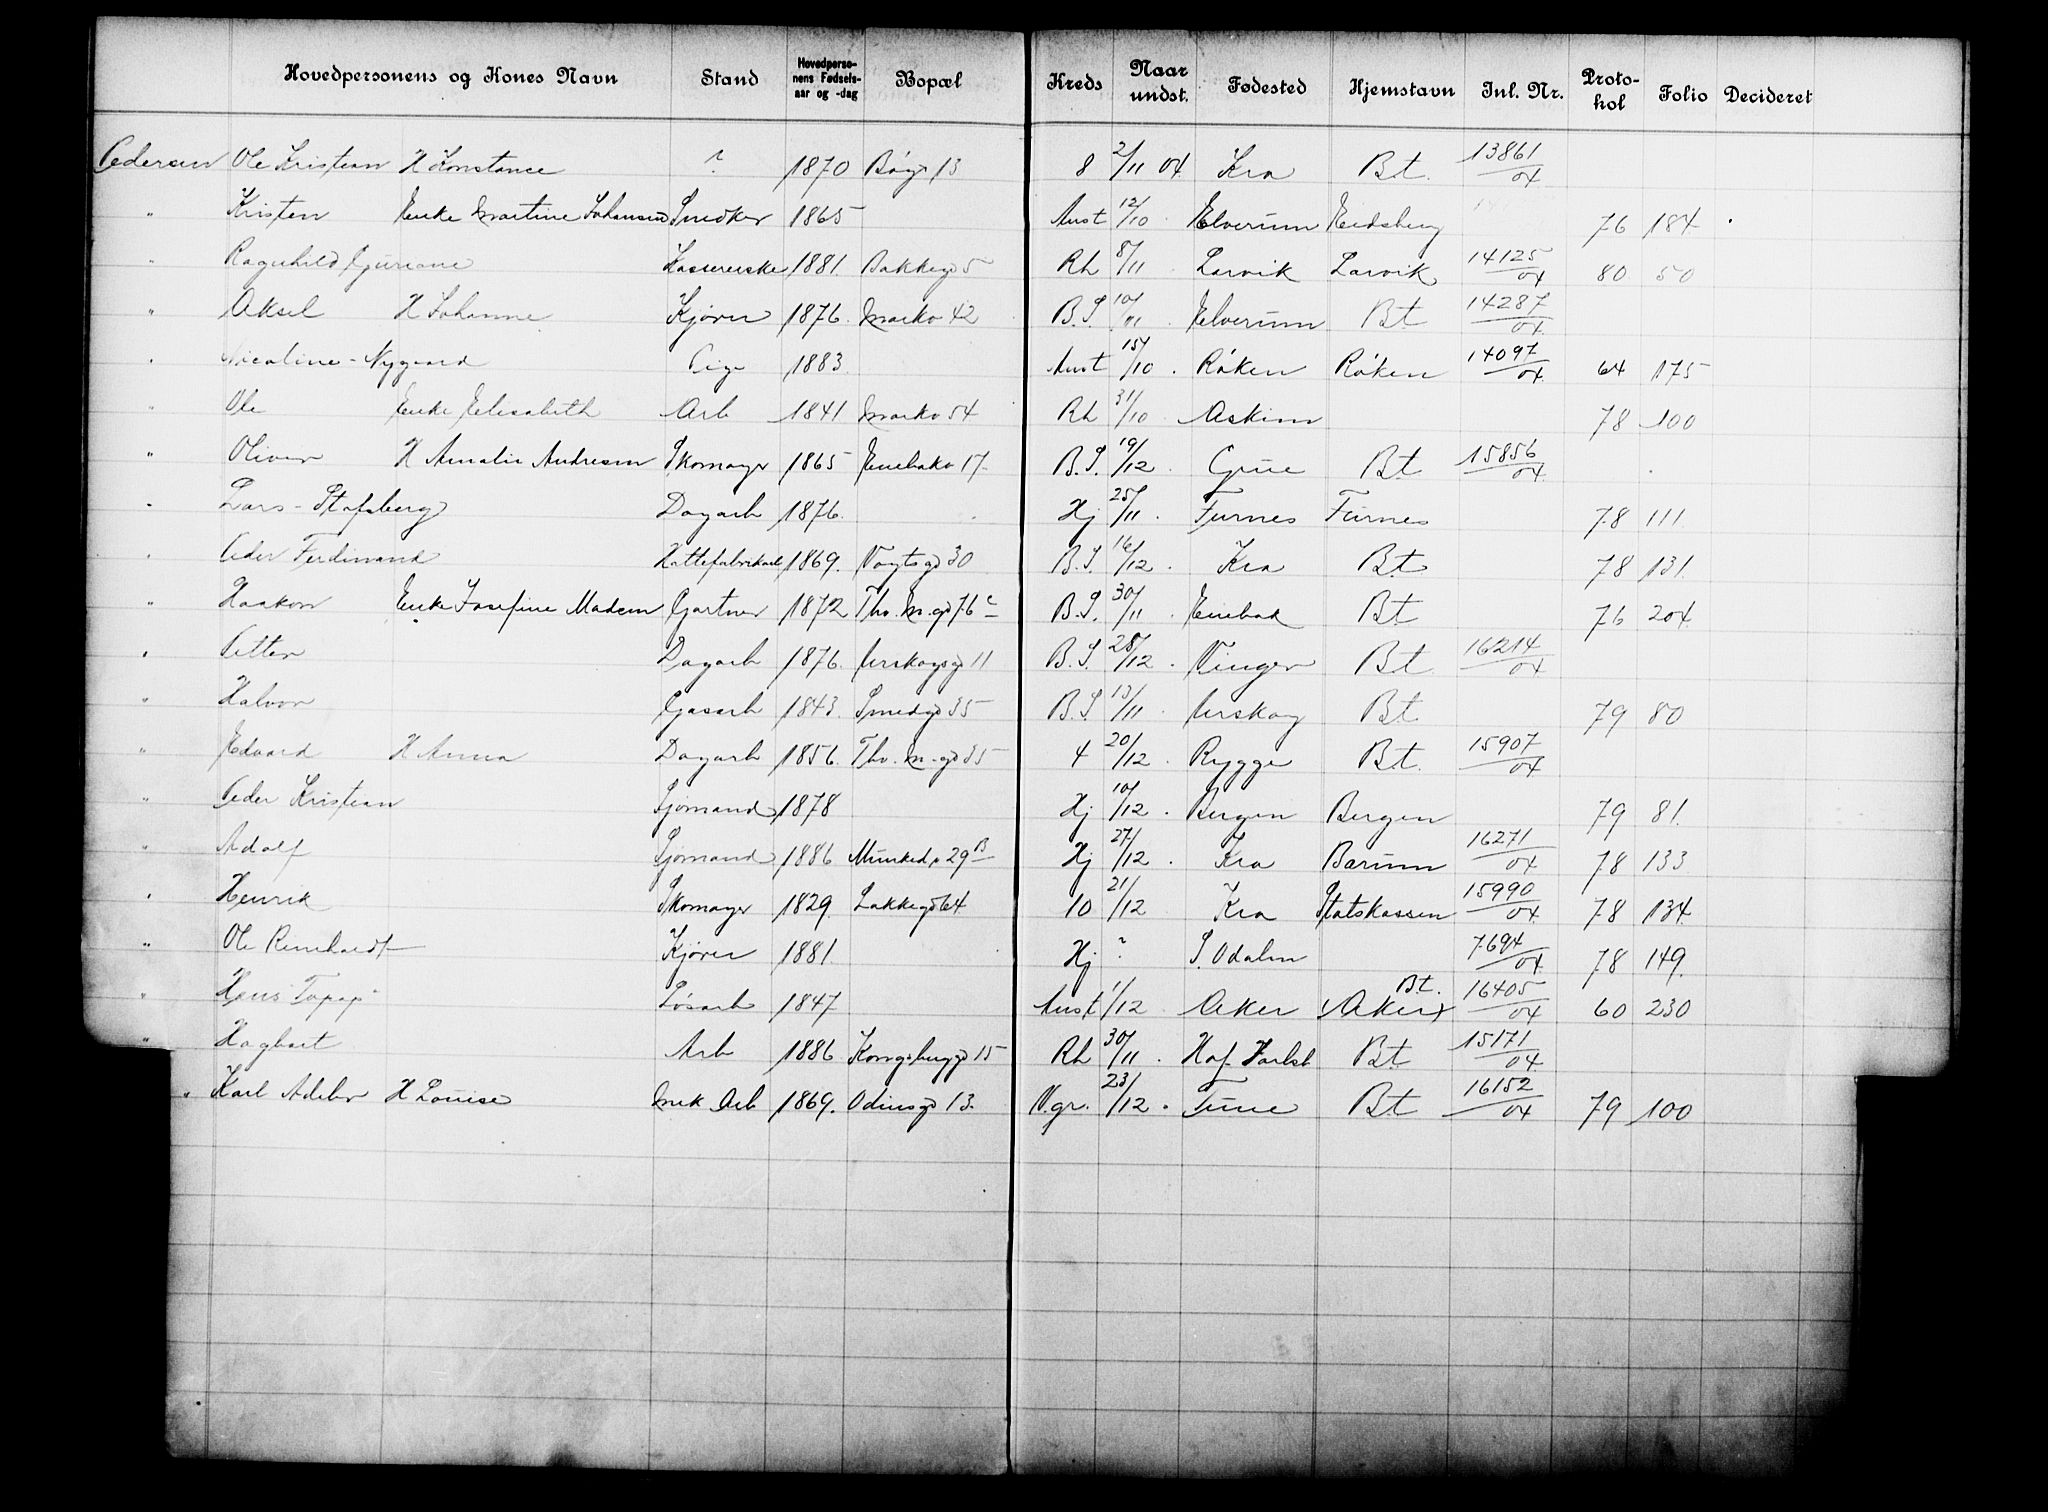 Hovedpersonens og Kones Navn Stand Hovedpersonens Fødselsaar og -dag Bopæl Kreds Naar undst. Fødested Hjemstavn Inl. Nr. Protokol Folio Decideret
Pedersen Ole Kristian H Konstance ? 1870 13 8 2/11 04 Kra Bt. 13861/04
" Kristen Enke Martine Johansen Snedker 1865 Aust 12/10 Elverum Eidsberg 76 184
" Ragnhild Gjuriane Kassererske 1881 Bakkegd 5 Rh 8/11 Larvik Larvik 14125/04 80 50
" Aksel H Johanne Kjører 1876 Markv 42 B.S. 10/11 Elverum Bt 14287/04
" Nicoline - Nygaard Pige 1883 Aust 15/10 Røken Røken 14097/04 64 175
" Ole Enke Elisabeth Arb 1841 Markv 54 Rh 31/10 Askim 78 100
" Oliver H Amalie Andresen Skomager 1865 Enebakv 17 B.S. 19/12 Grue Bt 15856/04
" Lars - Stafsberg Dagarb 1876 Hj 25/11 Furnes Furnes 78 111
" Peder Ferdinand Hattefabrikarb 1869. Vogtsgd 30 B.S. 16/12 Kra Bt 78 131
" Haakon Enke Josefine Madsen Gartner 1872 Thv. M. gd 76 c B.S. 30/11 Enebak Bt 76 204
" Petter Dagarb 1876. Urskogsgd 11 B.S. 28/12 Vinger Bt 16214/04
" Halvor Gasarb 1843 Smedgd 35 B.S 13/11 Urskog Bt 79 80
" Edvard H Anna Dagarb 1856. Thv. M. gd 35 4 20/12 Rygge Bt. 15907/04
" Peder Kristian Sjømand 1878 Hj 10/12 Bergen Bergen 79 81.
" Adolf Sjømand 1886 Munked. 29 B Hj 27/12 Kra Bærum 16271/04 78 133
" Henrik Skomager 1829 Lakkegd 64 10 21/12 Kra Statskassen 15990/04 78 134
" Ole Reinhardt Kjører 1881 Hj ? S. Odalen 7694/04 78 149.
" Hans Løsarb 1847 Aust 1/12 Aker Bt. Aker 16405/04 60 230
" Hagbart Arb 1886 Kongsbergd 15 Rh 30/11 Hof Jarlsb Bt 15171/04
" Karl H Louise Mek Arb 1869. Odinsgd 13. V.gr. 23/12 Tune Bt 16152/04 79 100